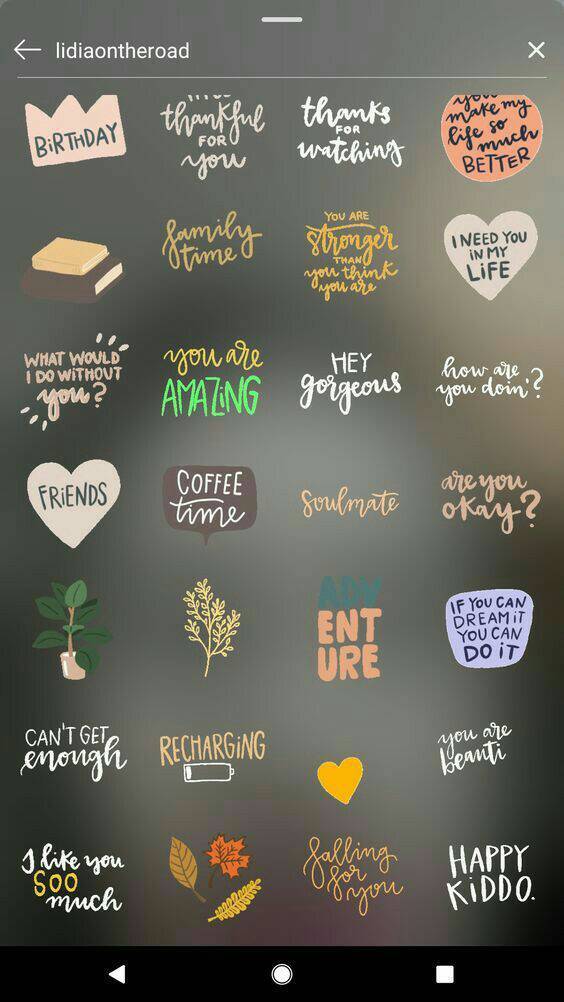 lidiaontheroad
BiRTHDAY
thankful
FOR
you
thanks
FOR
watching
you
make my
life so
much
BETTER
family
time
YOU ARE
stronger
THAN
you think
you are
I NEED YOU
iN MY
LiFE
WHAT WOULD
I DO WITHOUT
you?
you are
AMAZiNG
HEY
gorgeous
how are
you doin'?
FRiENDS
COFFEE
time
Soulmate
are you
okay?
ADV
ENT
URE
IF YOU CAN
DREAM iT
YOU CAN
DO iT
CAN'T GET
enough
RECHARGiNG
you are
beauti
I like you
SOO
much
falling
for
you
HAPPY
KiDDO.